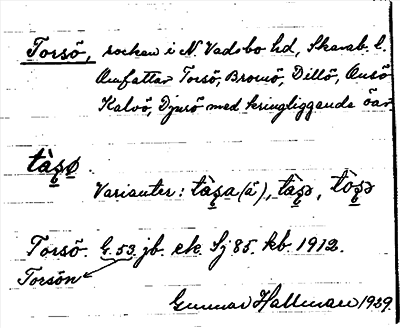 Torsö, socken i N. Vadsbo hd, Skarab. l.
Omfattar Torsö, Bromö, Dillö, Onsö
Kalvö, Djurö med kringliggande öar
tàṣø.
Varianter: tàṣa (ä), tàṣə, tòṣə
Torsö. G. 53. jb. ek. Sj 85. kb. 1912.
Torsön
Gunnar Hallman 1929.